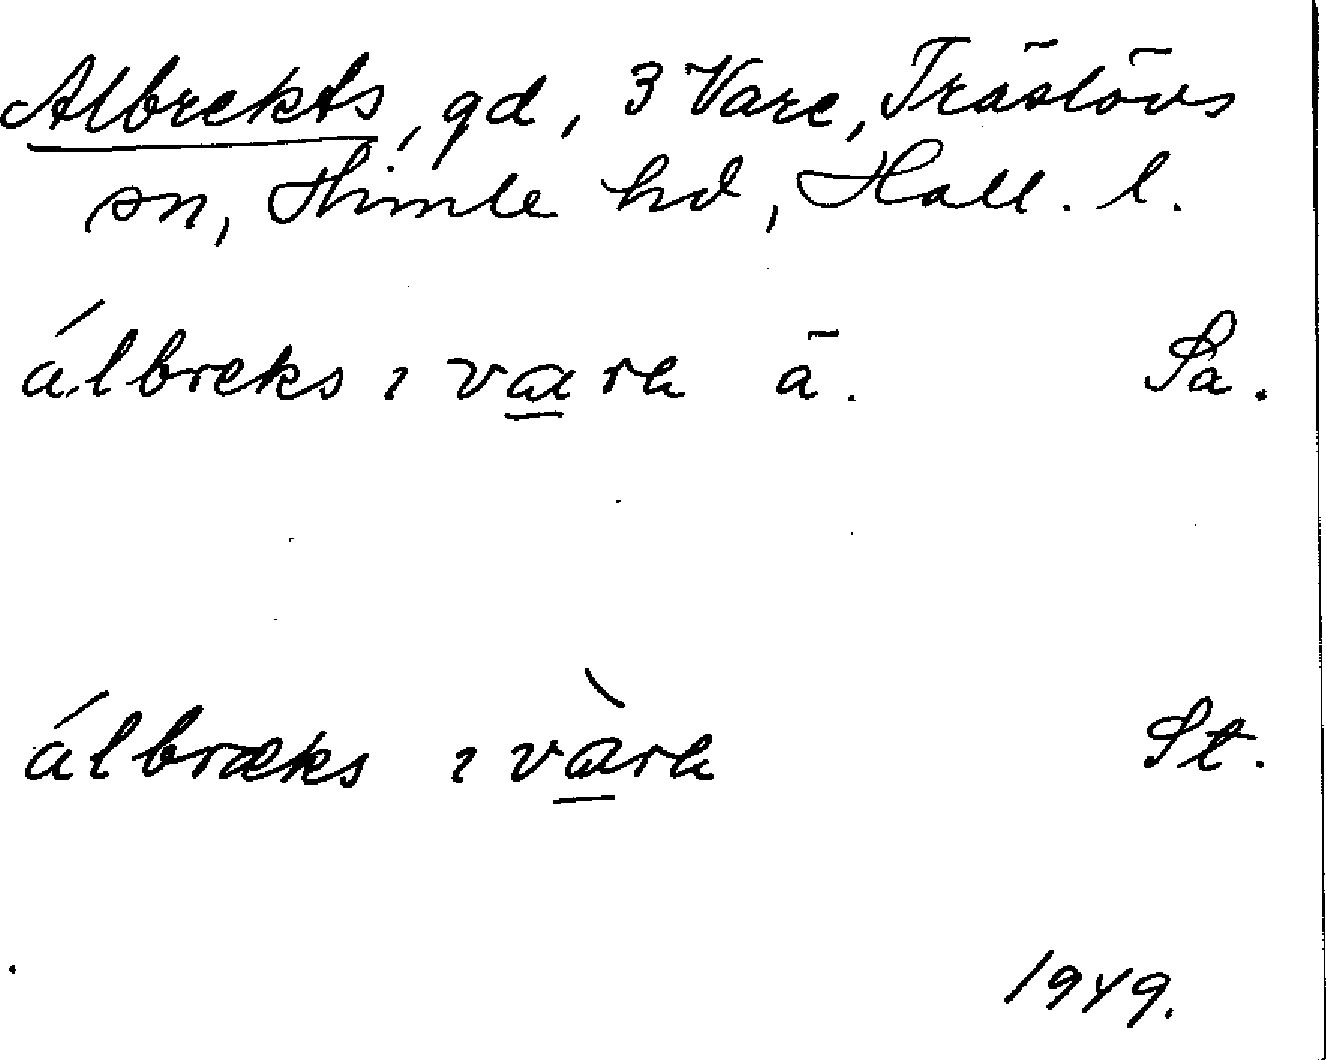 Albrekts, gd, 3 Vare, Träslövs
sn, Himle hd, Hall. l.
álbreks ı vara ā. Sa.
álbræks ı vàra St.
1949.